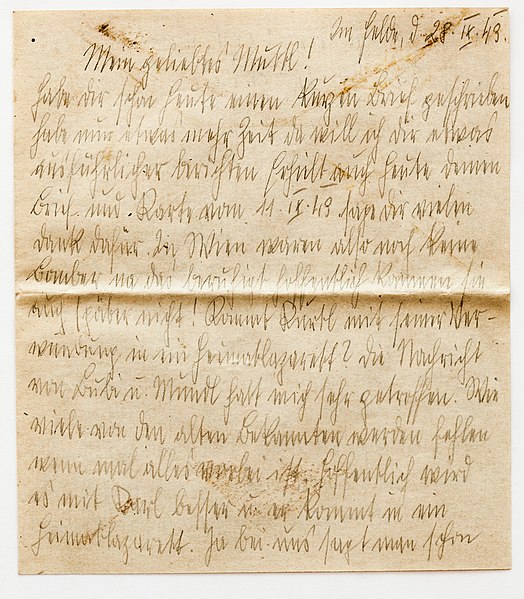 Im Felde, d. 28. IX. 43.
Mein geliebtes Muttl!
habe dir schon heute einen kurzen Brief geschrieben
habe nun etwas mehr Zeit da will ich dir etwas
ausführlicher berichten. Erhielt auch heute deinen
Brief und Karte vom 11. IX. 43 sage dir vielen
dank dafür. In Wien waren also noch keine
Bomber na das beruhigt hoffentlich kommen sie
auch später nicht! Kommt Kurtl mit seiner Ver-
wundung in ein Heimatlazarett? Die Nachricht
von Bubi u. Mundl hatt mich sehr getroffen. Wie
viele von den alten Bekannten werden fehlen
wenn mal alles vorbei ist. Hoffentlich wird
es mit Karl besser u. er kommt in ein
Heimatlazarett. Ja bei uns sagt man schon